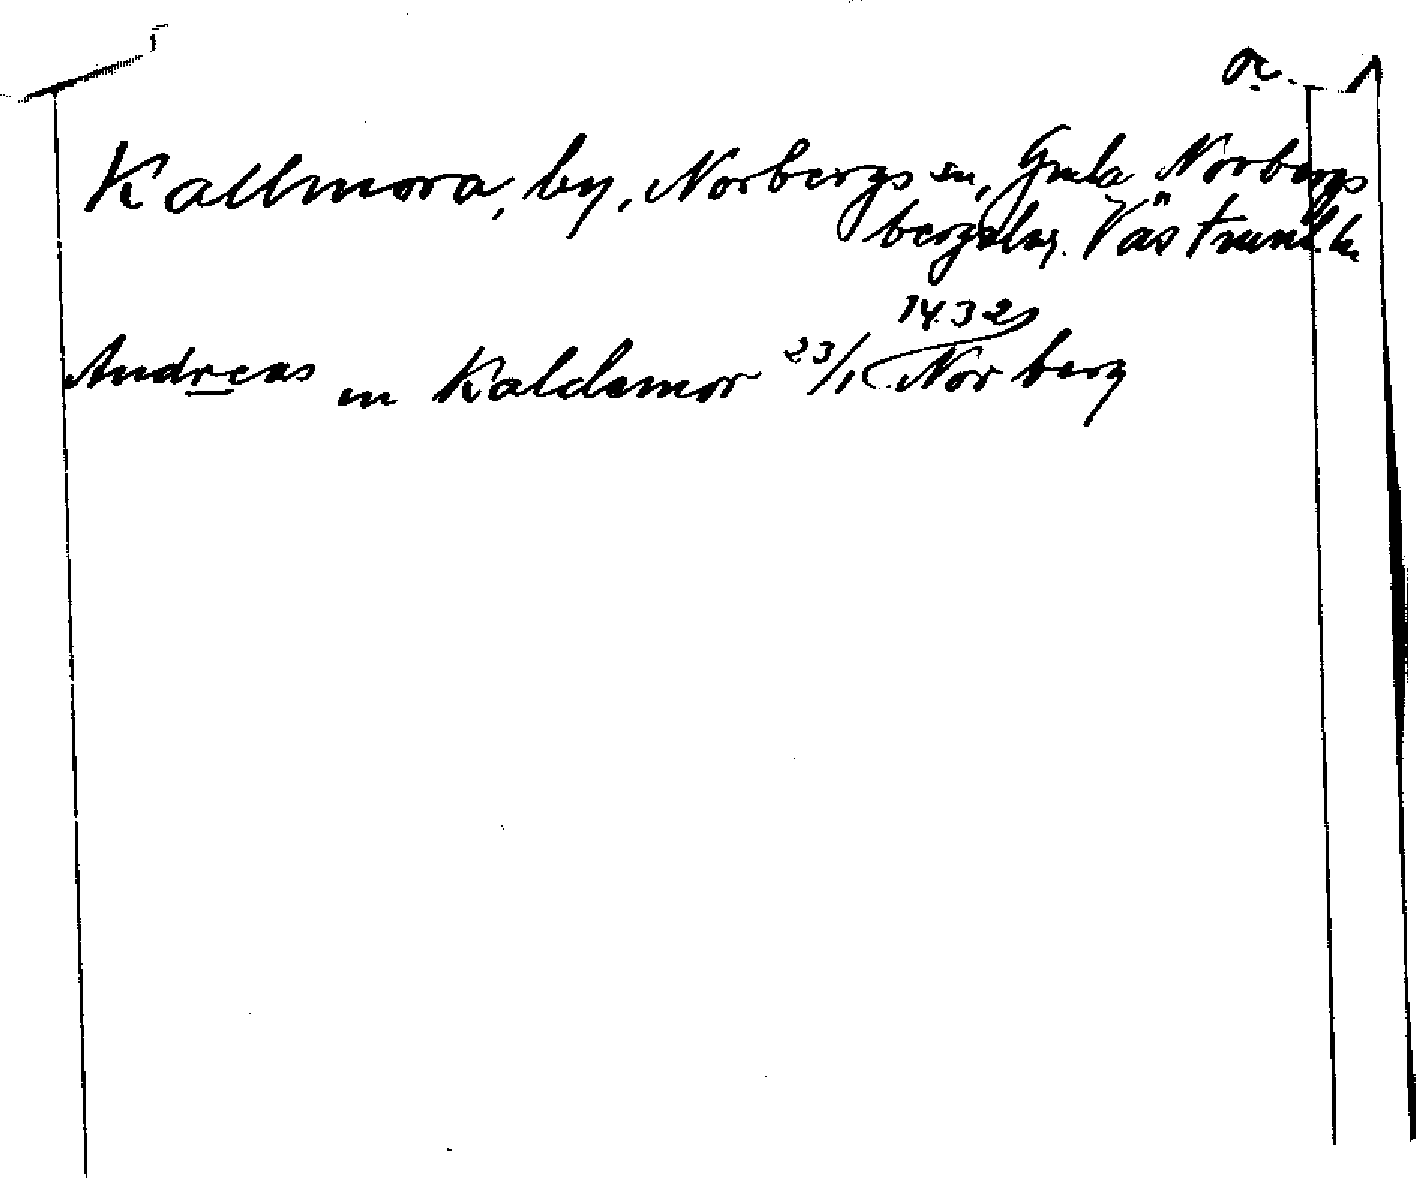 Kallmora, by, Norbergs sn, Gmla Norbergs
bergslag. Västmanl.
Andreas in Kaldamor 23/1 1432 Norberg